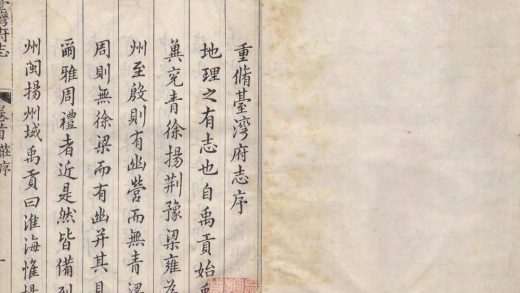 重脩臺灣府志序
地理之有志也自禹貢始禹
冀兗青徐揚荊豫梁雍為
州至殷則有幽營而無青梁
周則無徐梁而有幽并其見
爾雅周禮者近是然皆備列
州閩揚州域禹貢曰淮海惟揚
臺灣府志 卷首 序 一